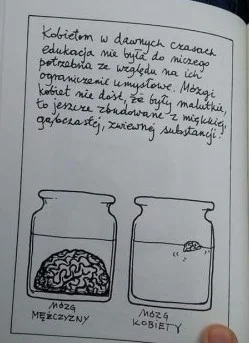 Kobietom w dawnych czasach
edukacja nie była do niczego
potrzebna ze względu na ich
ograniczenie umysłowe. Mózgi
kobiet nie dość, że były malutkie,
to jeszcze zbudowane z miękkiej,
gąbczastej, zwiewnej substancji.
MÓZG
MĘŻCZYZNY
MÓZG
KOBIETY